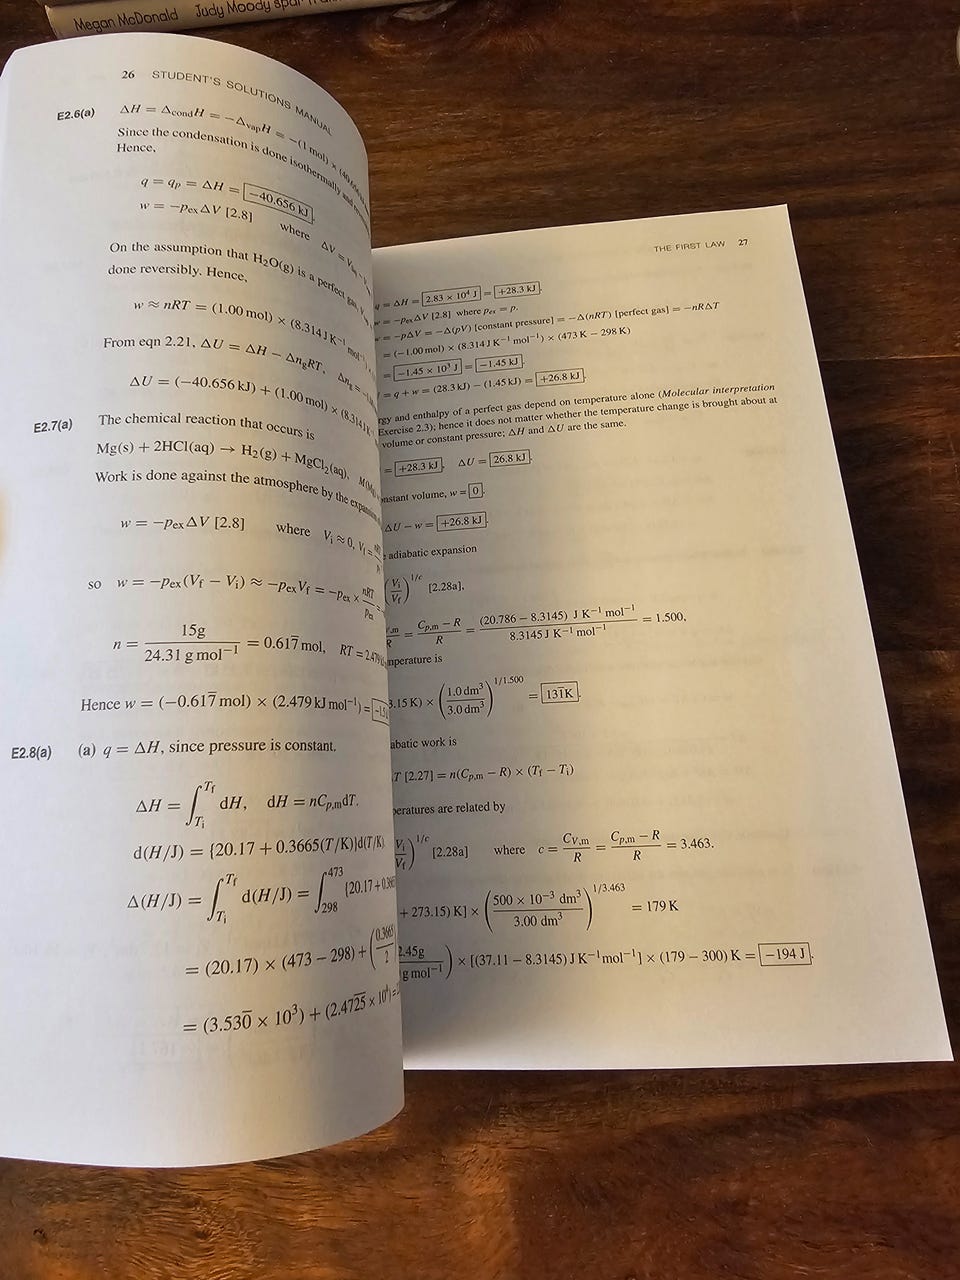 Megan McDonald Judy Moody
26 STUDENT'S SOLUTIONS MANUAL
E2.6(a) ΔH = Δ_cond H = −Δ_vap H = −(1 mol) × (40.656
Since the condensation is done isothermally and
Hence,
q = q_p = ΔH = −40.656 kJ
w = −p_ex ΔV [2.8] where ΔV =
On the assumption that H₂O(g) is a perfect gas
done reversibly. Hence,
w ≈ nRT = (1.00 mol) × (8.314 J K⁻¹ mol⁻¹)
From eqn 2.21, ΔU = ΔH − Δn_g RT, Δn_g =
ΔU = (−40.656 kJ) + (1.00 mol) × (8.314 J K
E2.7(a) The chemical reaction that occurs is
Mg(s) + 2HCl(aq) → H₂(g) + MgCl₂(aq),
Work is done against the atmosphere by the
w = −p_ex ΔV [2.8] where V_i ≈ 0, V_f =
so w = −p_ex(V_f − V_i) ≈ −p_ex V_f = −p_ex × nRT/p_ex
n = 15g / 24.31 g mol⁻¹ = 0.617̅ mol, RT = 2.479
Hence w = (−0.617̅ mol) × (2.479 kJ mol⁻¹) =
E2.8(a) (a) q = ΔH, since pressure is constant.
ΔH = ∫_{T_i}^{T_f} dH, dH = nC_{p,m}dT.
d(H/J) = {20.17 + 0.3665(T/K)}d(T/K)
Δ(H/J) = ∫_{T_i}^{T_f} d(H/J) = ∫_{298}^{473} {20.17 +
= (20.17) × (473 − 298) + (0.3665/2
= (3.530̅ × 10³) + (2.472̅5̅ × 10⁴) =
THE FIRST LAW 27
q = ΔH = 2.83 × 10⁴ J = +28.3 kJ.
= −p_ex ΔV [2.8] where p_ex = p.
= −pΔV = −Δ(pV) [constant pressure] = −Δ(nRT) [perfect gas] = −nRΔT
= (−1.00 mol) × (8.314 J K⁻¹ mol⁻¹) × (473 K − 298 K)
= −1.45 × 10³ J = −1.45 kJ.
= q + w = (28.3 kJ) − (1.45 kJ) = +26.8 kJ.
and enthalpy of a perfect gas depend on temperature alone (Molecular interpretation
Exercise 2.3); hence it does not matter whether the temperature change is brought about at
volume or constant pressure; ΔH and ΔU are the same.
= +28.3 kJ, ΔU = 26.8 kJ.
volume, w = 0.
ΔU − w = +26.8 kJ.
adiabatic expansion
(V_i/V_f)^{1/c} [2.28a],
= (C_{p,m} − R)/R = (20.786 − 8.3145) J K⁻¹ mol⁻¹ / 8.3145 J K⁻¹ mol⁻¹ = 1.500,
is
.15 K) × (1.0 dm³/3.0 dm³)^{1/1.500} = 131̅ K.
work is
T [2.27] = n(C_{p,m} − R) × (T_f − T_i)
are related by
(V_i/V_f)^{1/c} [2.28a] where c = C_{V,m}/R = (C_{p,m} − R)/R = 3.463.
+ 273.15) K] × (500 × 10⁻³ dm³/3.00 dm³)^{1/3.463} = 179 K
2.45g / g mol⁻¹) × [(37.11 − 8.3145) J K⁻¹ mol⁻¹] × (179 − 300) K = −194 J.